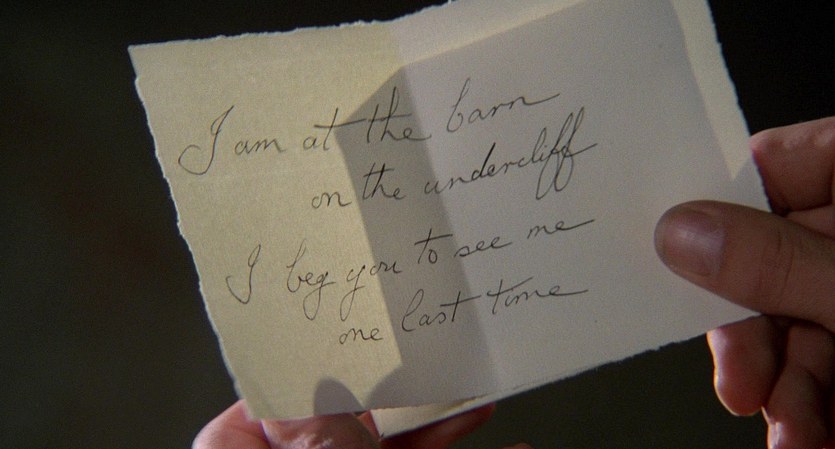 I am at the barn
on the undercliff
I beg you to see me
one last time